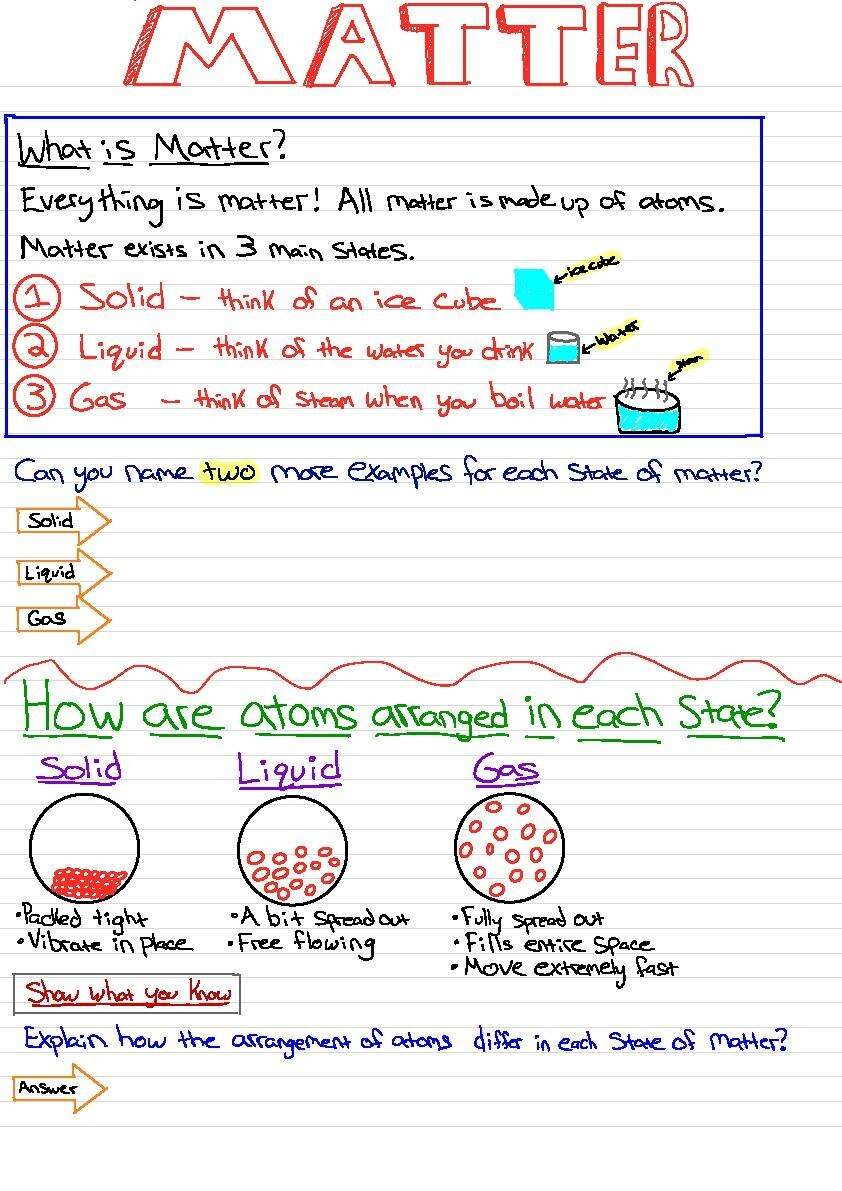 MATTER
What is Matter?
Everything is matter! All matter is made up of atoms.
Matter exists in 3 main states.
1 Solid - think of an ice cube
ice cube
2 Liquid - think of the water you drink
Water
3 Gas - think of steam when you boil water
steam
Can you name two more examples for each state of matter?
Solid
Liquid
Gas
How are atoms arranged in each state?
Solid Liquid Gas
• Packed tight
• Vibrate in place
• A bit spread out
• Free flowing
• Fully spread out
• Fills entire space
• Move extremely fast
Show what you know
Explain how the arrangement of atoms differ in each state of matter?
Answer